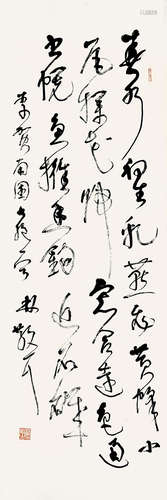 春水初生乳燕飛黃蜂小
尾撲花歸窗含遠色通
書幌魚擁香鉤近石磯
李賀南園